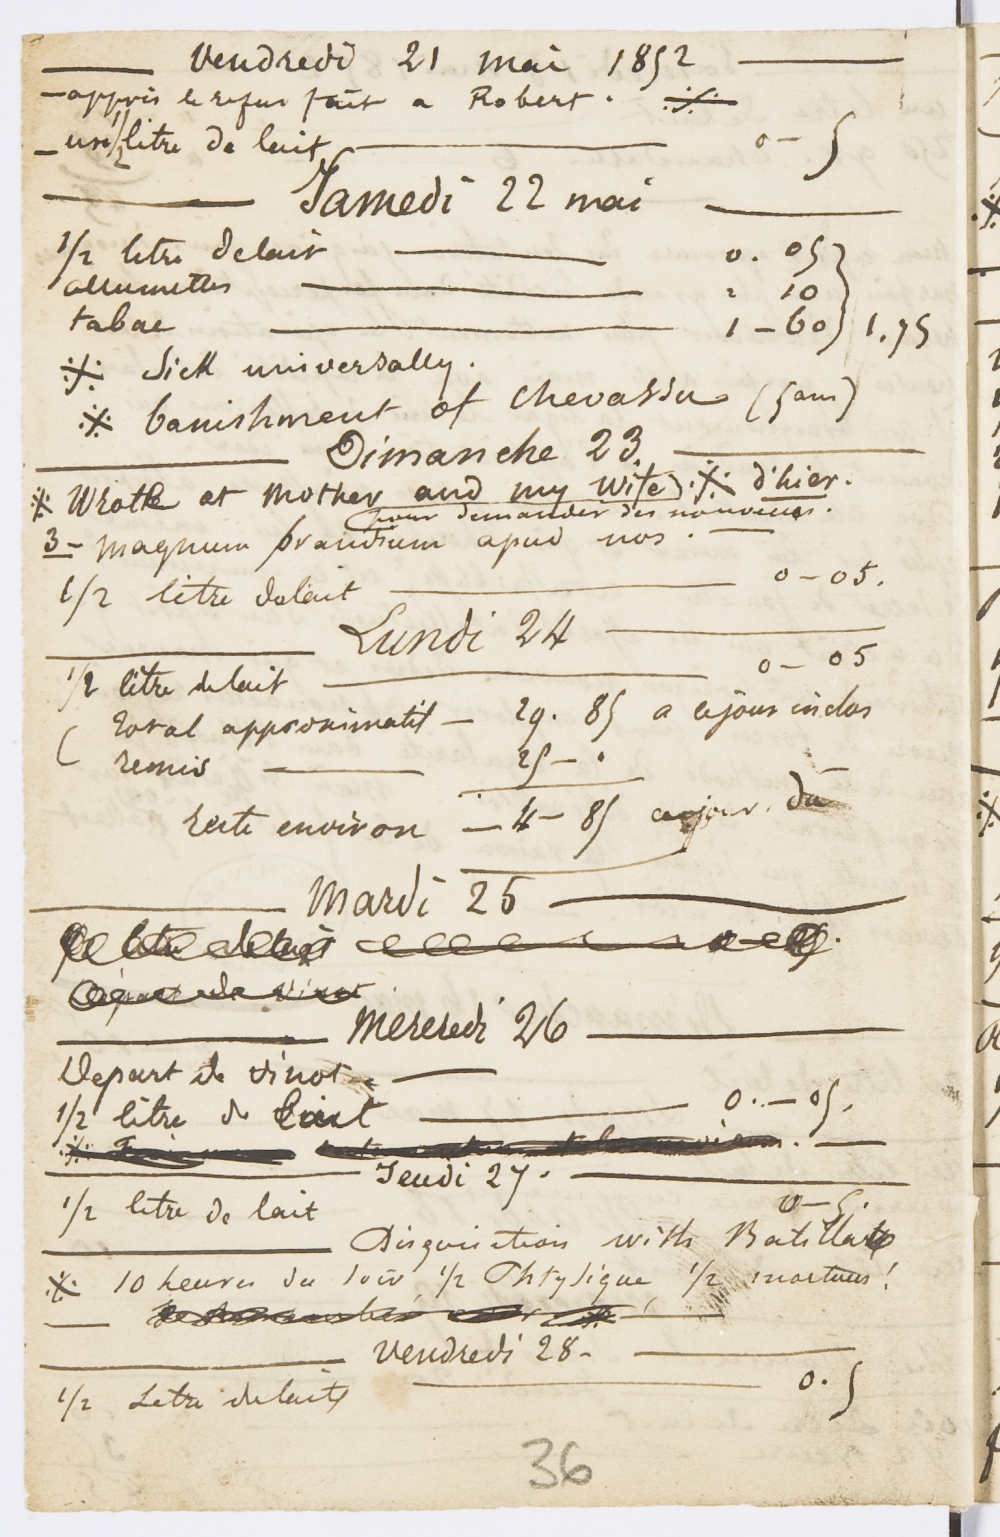 Vendredi 21 mai 1852
- appris le refus fait a Robert. ※
- un 1/2 litre de lait 0 - 5
Samedi 22 mai
1/2 litre de lait 0. 05
allumettes " 10
tabac 1 - 60 } 1.75
※ Sick universally.
※ banishment of Chevassu (5 ans)
Dimanche 23
※ Wrote at mother and my wife ※ d'hier.
pour demander des nouvelles.
3 - magnum brandium apud nos.
1/2 litre de lait 0 - 05.
Lundi 24
1/2 litre de lait 0 - 05
( total approximatif - 29. 85 a ce jour inclus
remis 25 - "
reste environ - 4 - 85 ce jour. dû
Mardi 25
1/2 litre de lait
Départ de Vinot
Mercredi 26
Depart de Vinot.
1/2 litre de lait 0. - 05.
Jeudi 27.
1/2 litre de lait 0 - 5.
Disquisition with
※ 10 heures du soir, 1/2 Phtysique, 1/2 mortuus!
Vendredi 28 -
1/2 Litre de lait 0. 5
36